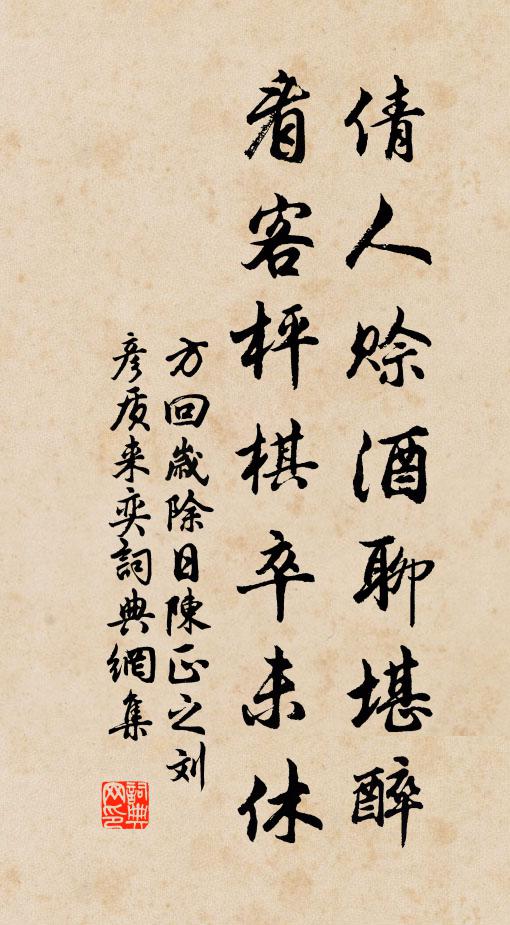 倩人赊酒聊堪醉
看客枰棋卒未休
方回歲除日陳正之刘
彦质来奕詞典網集
詞典网印